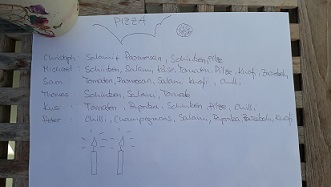 PIZZA
Christoph: Salami, Parmesan, Schinken, Pilze
Michael: Schinken, Salami, Käse, Tomaten, Pilze, Knofi, Zwiebeln,
Sam: Tomaten, Parmesan, Salami, Knofi, Chilli
Thomas: Schinken, Salami, Tomate
Tomaten, Paprika, Schinken, Pilze, Chilli
Peter: Chilli, Champignons, Salami, Paprika, Zwiebeln, Knofi